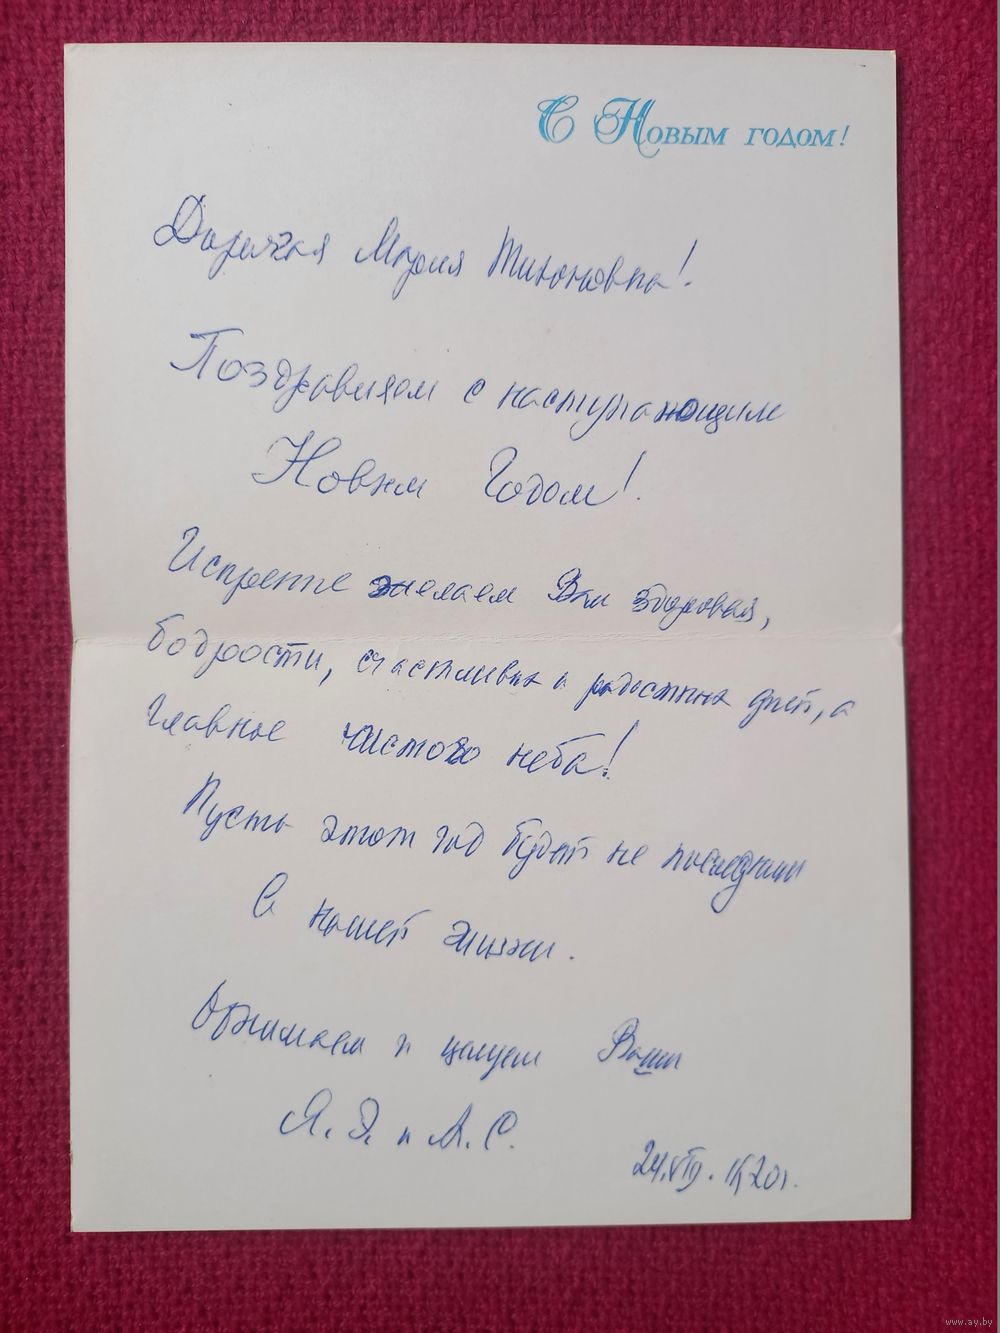 С Новым годом!
Дорогая Мария Тихоновна!
Поздравляем с наступающим
Новым Годом!
Искренне желаем Вам здоровья,
бодрости, счастливых и радостных дней, а
главное чистого неба!
Пусть этот год будет не последним
в нашей жизни.
Обнимаем и целуем Ваши
Я. Э. и А. С.
www.ay.by